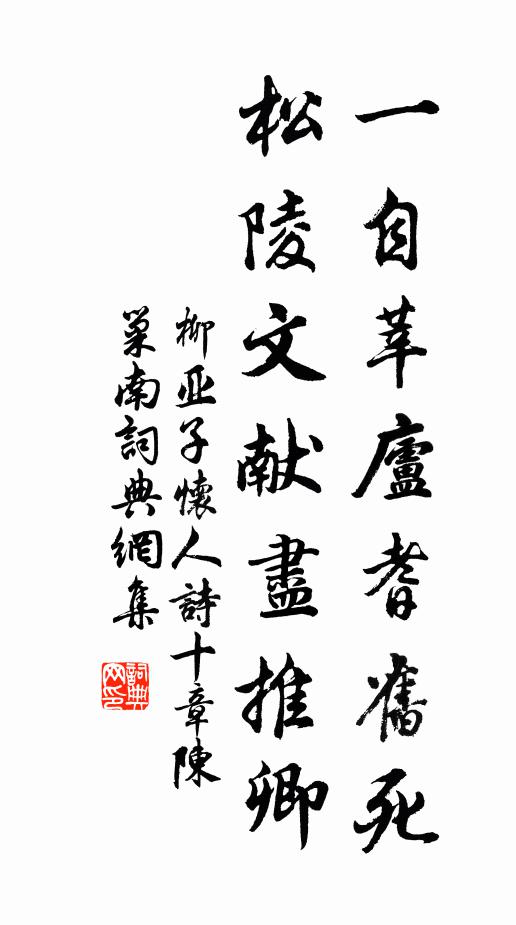 一自莘廬耆舊死
松陵文献盡推卿
柳亚子懷人詩十章陳
巢南詞典網集
詞典
网印